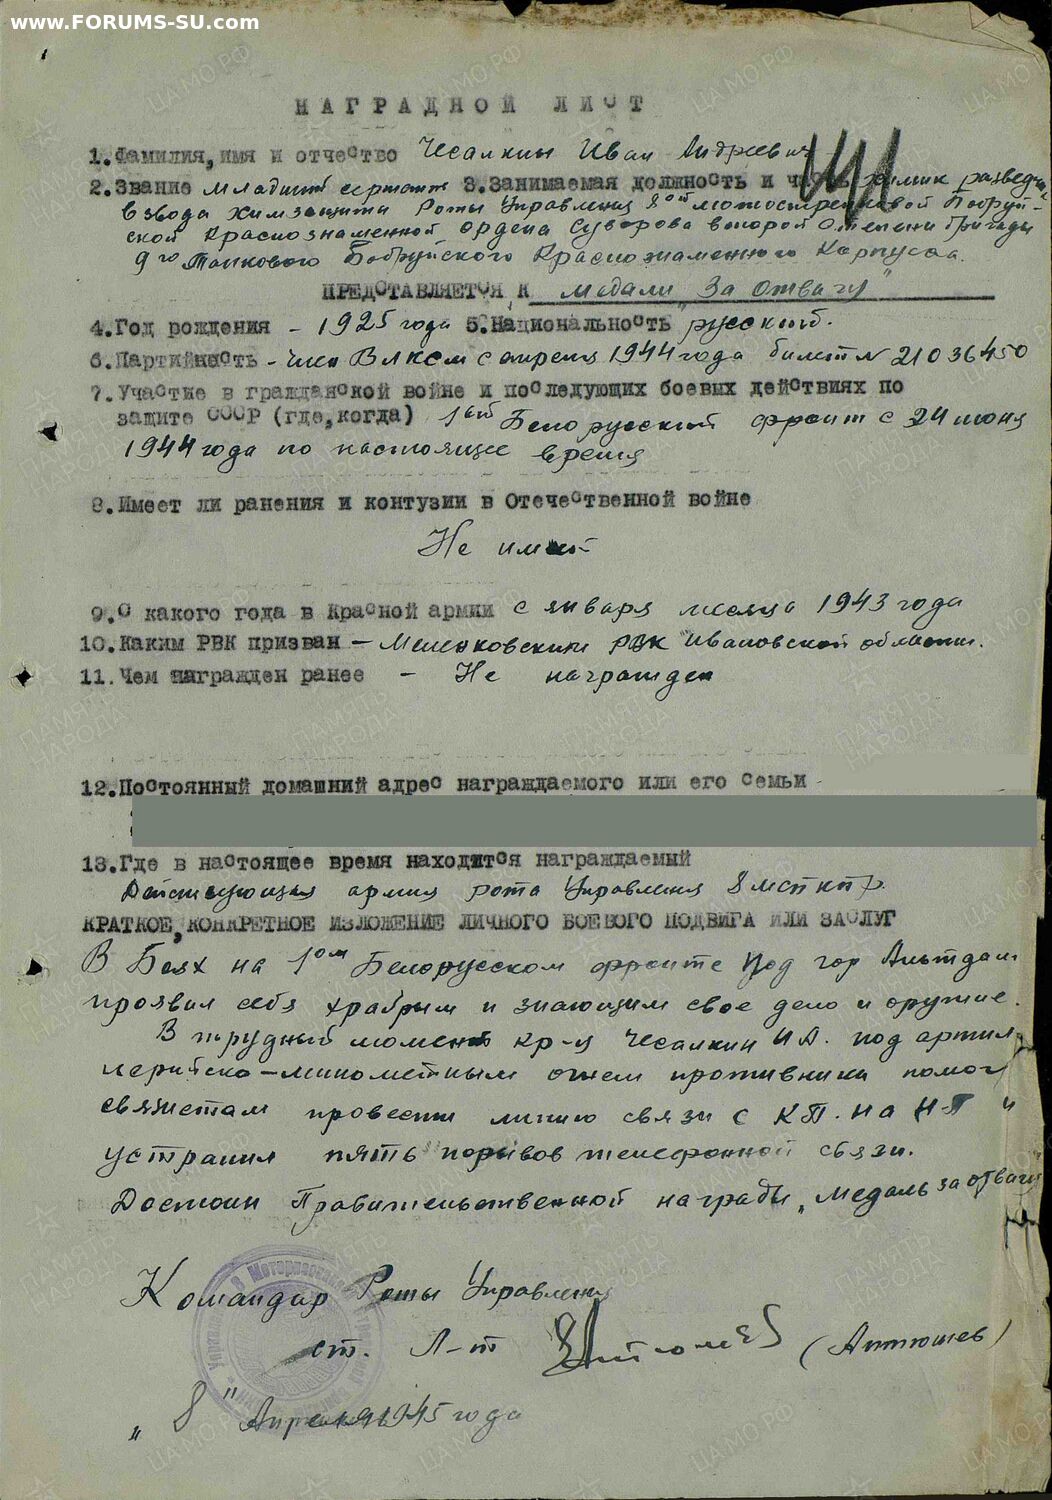 www.FORUMS-SU.com
НАГРАДНОЙ ЛИСТ
1. Фамилия, имя и отчество Чесалкин Иван Андреевич
2. Звание младший сержант 3. Занимаемая должность и часть химик разведчик
взвода химзащиты Роты Управления 8ой мотострелковой Бобруй-
ской Краснознаменной ордена Суворова второй степени бригады
9го Танкового Бобруйского Краснознаменного Корпуса.
ПРЕДСТАВЛЯЕТСЯ К медали "За отвагу"
4. Год рождения - 1925 года 5. Национальность русский.
6. Партийность - член ВЛКСМ с апреля 1944 года билет № 21036450
7. Участие в гражданской войне и последующих боевых действиях по
защите СССР (где, когда) 1ый Белорусский фронт с 24 июня
1944 года по настоящее время
8. Имеет ли ранения и контузии в Отечественной войне
Не имеет
9. С какого года в Красной армии с января месяца 1943 года
10. Каким РВК призван - РВК Ивановской области.
11. Чем награжден ранее - Не награжден
12. Постоянный домашний адрес награждаемого или его семьи
13. Где в настоящее время находится награждаемый
Действующая армия рота Управления
КРАТКОЕ, КОНКРЕТНОЕ ИЗЛОЖЕНИЕ ЛИЧНОГО БОЕВОГО ПОДВИГА ИЛИ ЗАСЛУГ
В Боях на 1ом Белорусском фронте под гор Альтдам
проявил себя храбрым и знающим свое дело и оружие.
В трудный момент кр-ц Чесалкин И А. под артил
лерийско-минометным огнем противника помог
связистам провести линию связи с КП. на НП и
устранил пять порывов телефонной связи.
Достоин Правительственной награды "медаль за отвагу
Командир Роты Управления
ст. Л-т (Антюшев)
"8" Апреля 1945 года